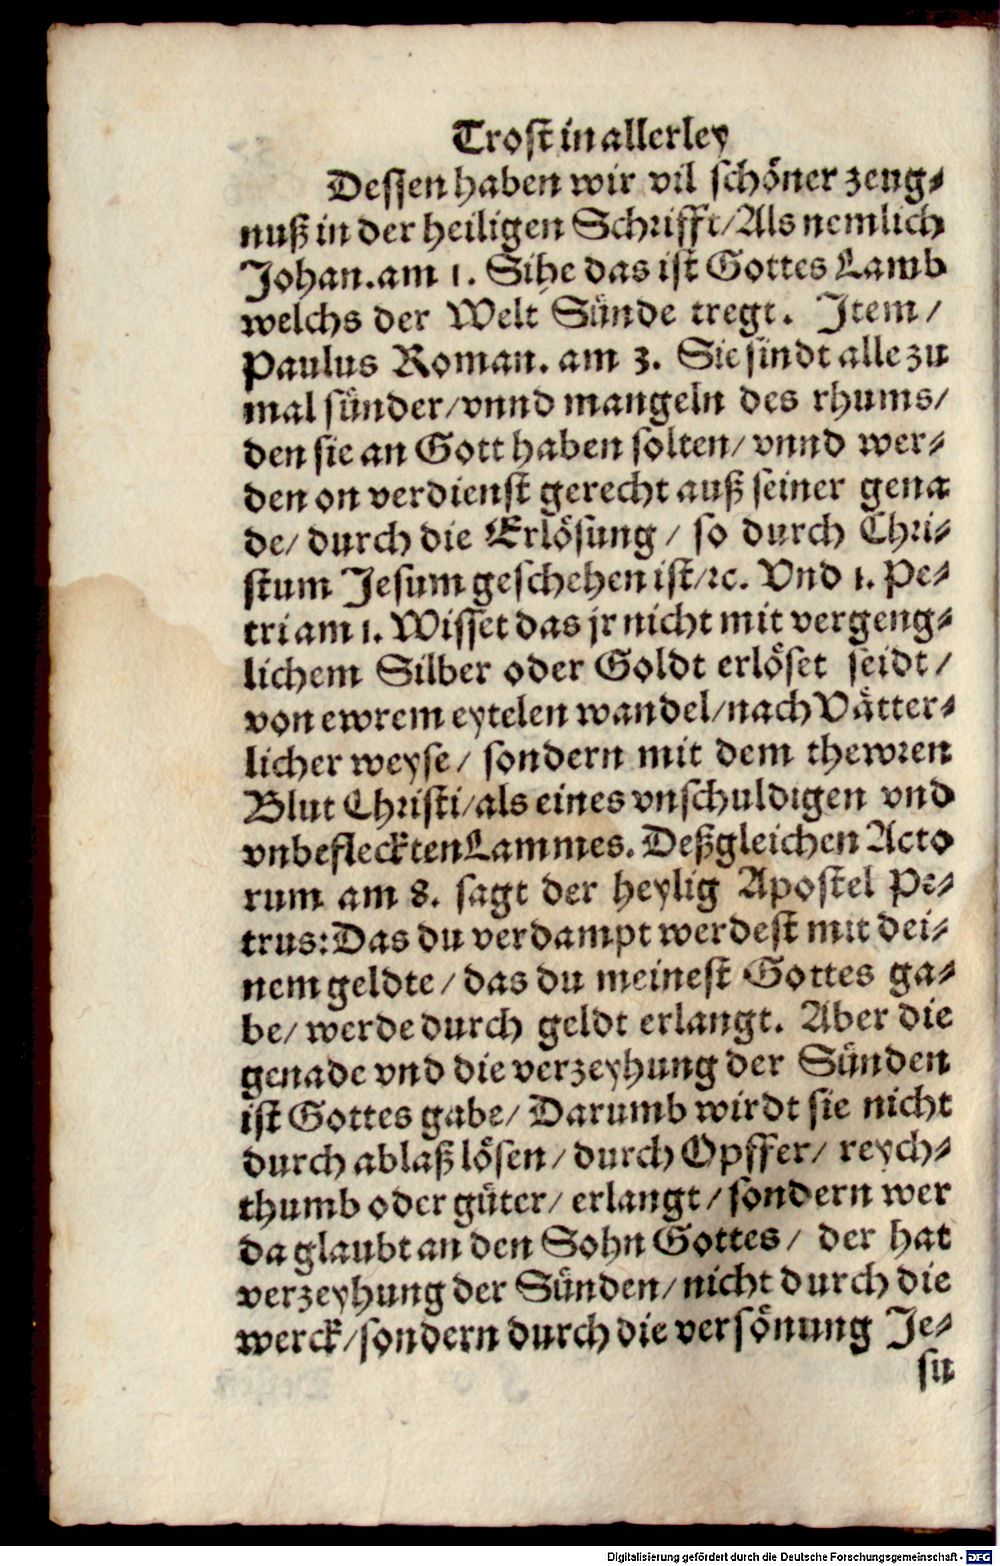 Trost in allerley
Dessen haben wir vil schöner zeug⸗
nuß in der heiligen Schrifft/Als nemlich
Johan.am 1. Sihe das ist Gottes Lamb
welchs der Welt Sünde tregt. Item/
Paulus Roman. am 3. Sie sindt alle zu
mal sünder/vnnd mangeln des rhums/
den sie an Gott haben solten/vnnd wer⸗
den on verdienst gerecht auß seiner gena
de/durch die Erlösung/ so durch Chri⸗
stum Jesum geschehen ist/ꝛc. Vnd 1. Pe⸗
tri am 1. Wisset das jr nicht mit vergeng⸗
lichem Silber oder Goldt erlöset seidt/
von ewrem eytelen wandel/nach Vätter⸗
licher weyse/ sondern mit dem thewren
Blut Christi/als eines vnschuldigen vnd
vnbefleckten Lammes. Deßgleichen Acto
rum am 8. sagt der heylig Apostel Pe⸗
trus:Das du verdampt werdest mit dei⸗
nem geldte/das du meinest Gottes ga⸗
be/werde durch geldt erlangt. Aber die
genade vnd die verzeyhung der Sünden
ist Gottes gabe/Darumb wirdt sie nicht
durch ablaß lösen/durch Opffer/ reych⸗
thumb oder güter/erlangt/sondern wer
da glaubt an den Sohn Gottes/ der hat
verzeyhung der Sünden/nicht durch die
werck/sondern durch die versönung Je⸗
su
Digitalisierung gefördert durch die Deutsche Forschungsgemeinschaft - DFG